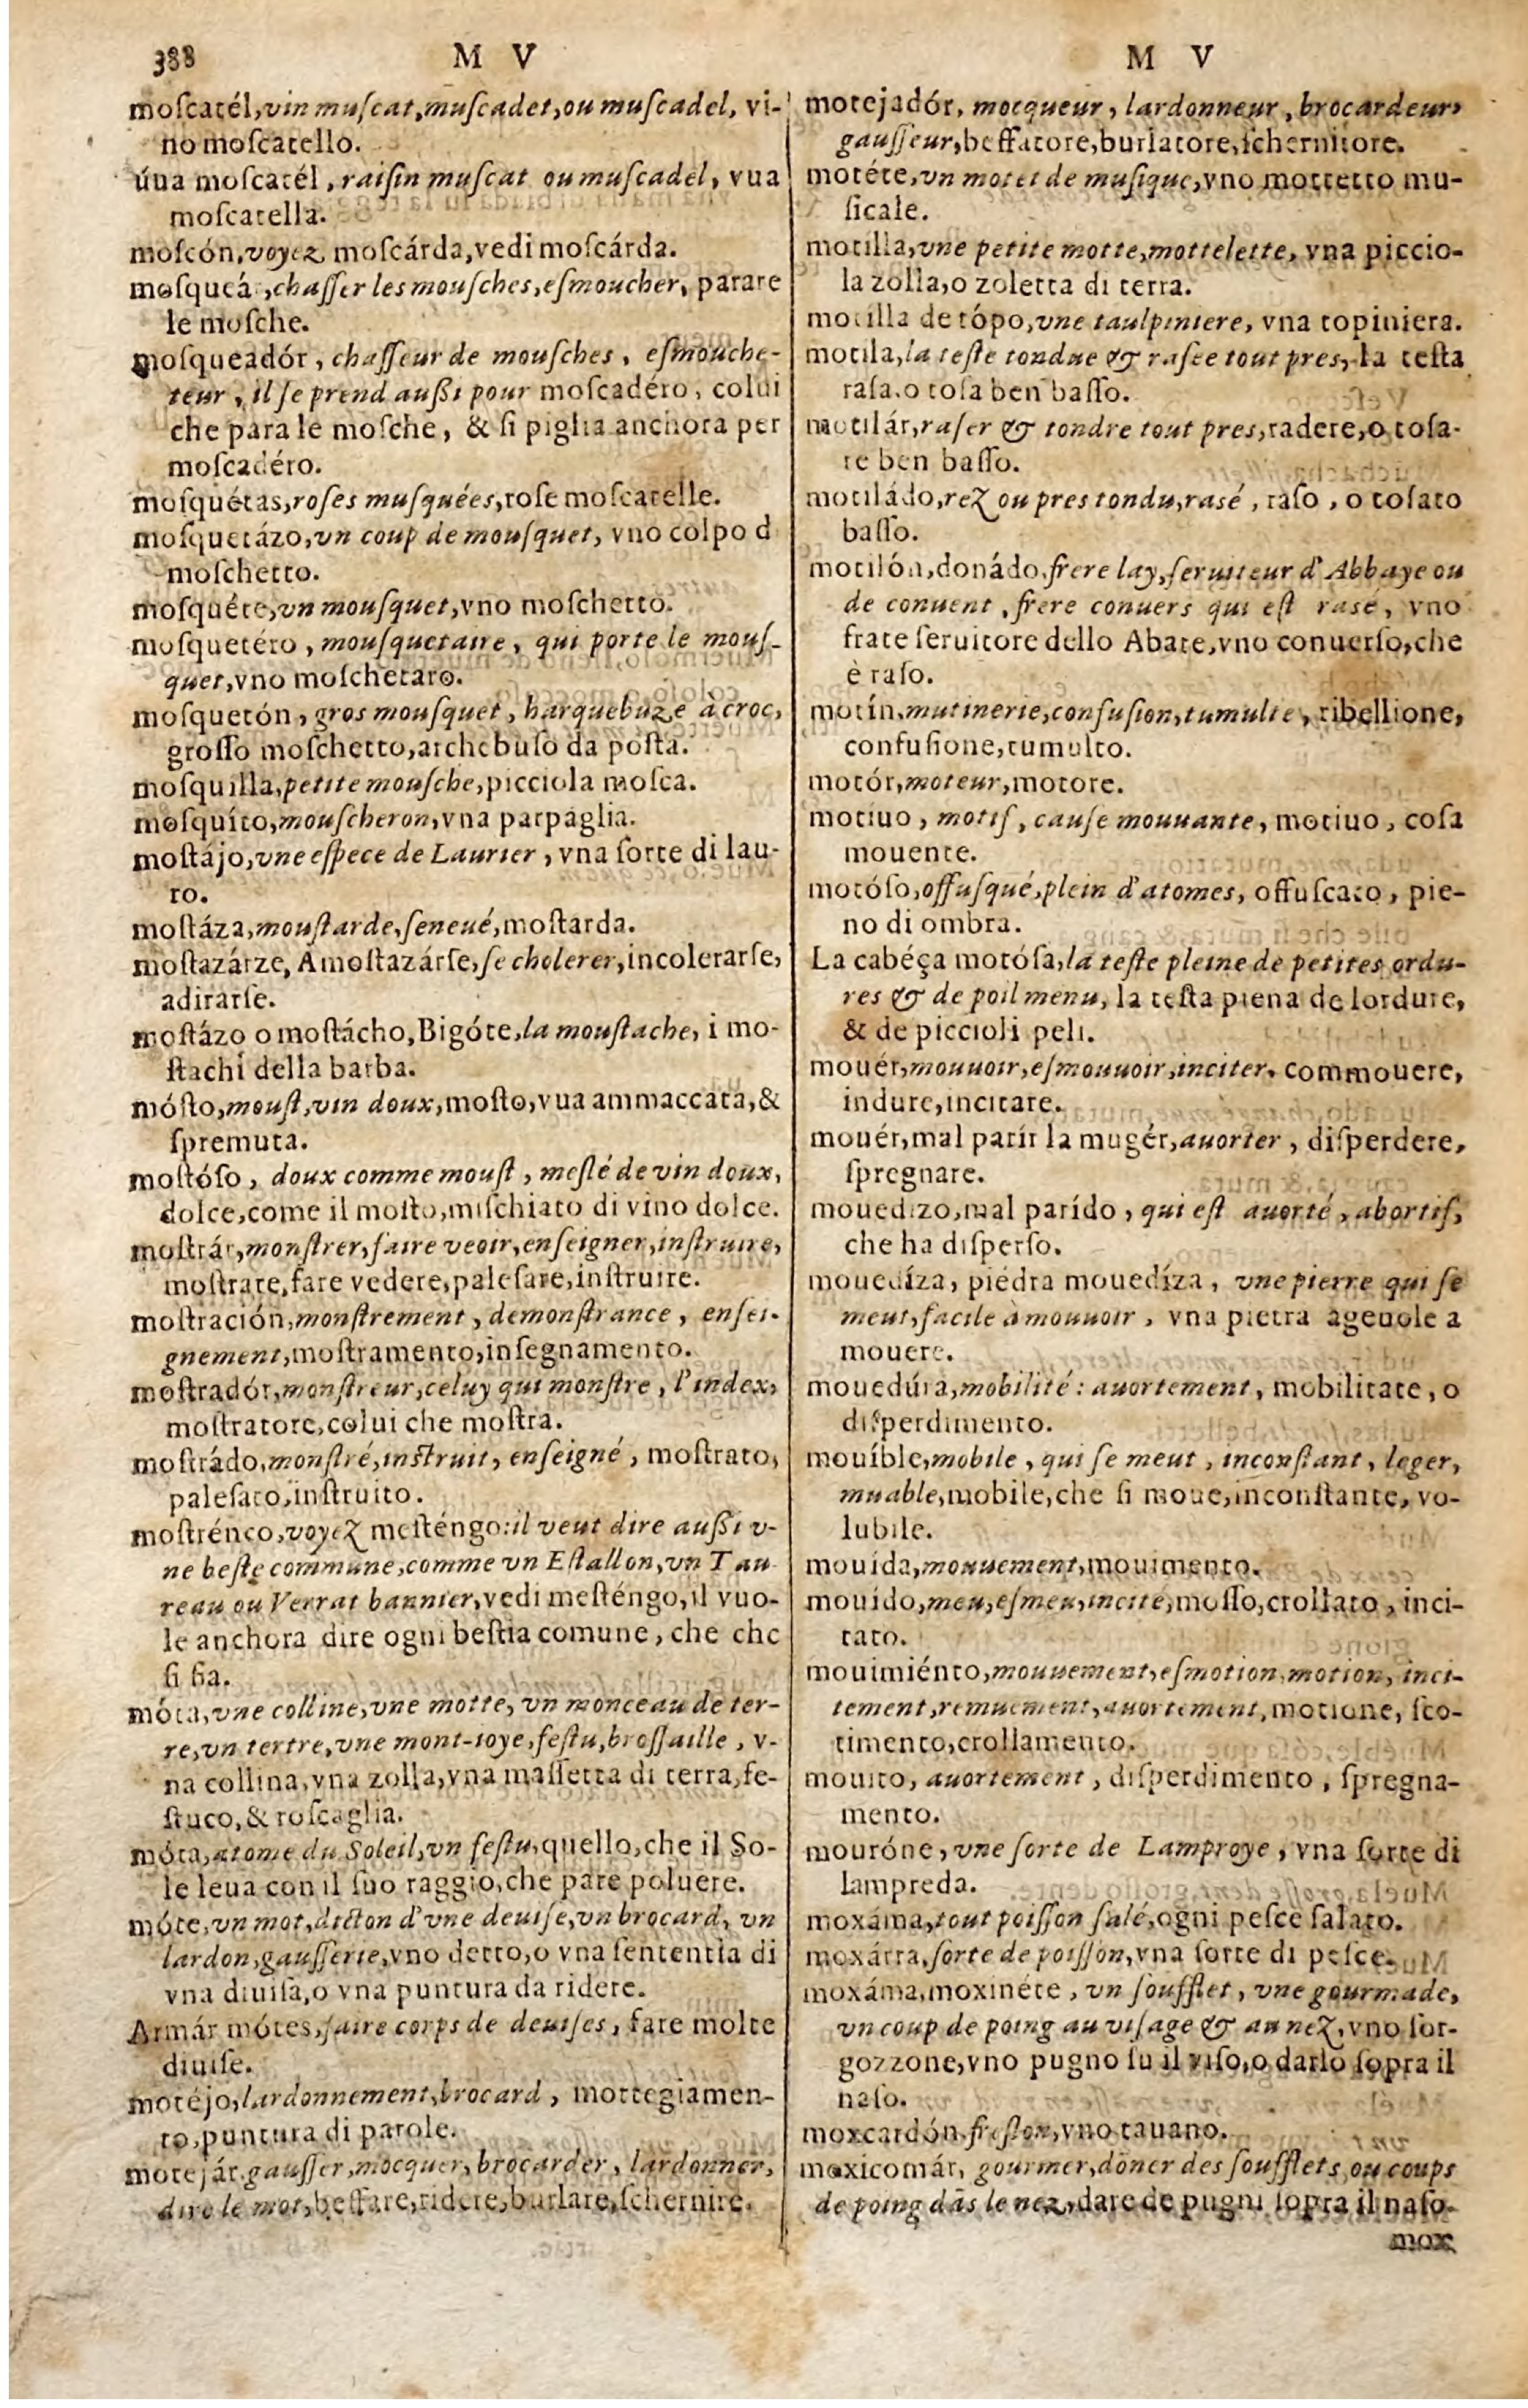 388
M V
moſcatél, vin muſcat, muſcadet, ou muſcadel, vi-
no moſcatello.
úua moſcatél, raiſin muſcat ou muſcadel, vua
moſcatella.
moſcón, voyez moſcárda, vedi moſcárda.
moſqueá, chaſſer les mouſches, eſmoucher, parare
le moſche.
moſqueadór, chaſſeur de mouſches, eſmouche-
teur, il ſe prend auſſi pour moſcadéro, colui
che para le moſche, & ſi piglia anchora per
moſcadéro.
moſquétas, roſes muſquées, roſe moſcatelle.
moſquetázo, vn coup de mouſquet, vno colpo d
moſchetto.
moſquéte, vn mouſquet, vno moſchetto.
moſquetéro, mouſquetaire, qui porte le mouſ-
quet, vno moſchetaro.
moſquetón, gros mouſquet, harquebuze à croc,
groſſo moſchetto, archebuſo da poſta.
moſquilla, petite mouſche, picciola moſca.
moſquíto, mouſcheron, vna parpaglia.
moſtájo, vne eſpece de Laurier, vna ſorte di lau-
ro.
moſtáza, mouſtarde, ſeneué, moſtarda.
moſtazárze, Amoſtazárſe, ſe cholerer, incolerarſe,
adirarſe.
moſtázo o moſtácho, Bigóte, la mouſtache, i mo-
ſtachi della barba.
móſto, mouſt, vin doux, moſto, vua ammaccata, &
ſpremuta.
moſtóſo, doux comme mouſt, meſlé de vin doux,
dolce, come il moſto, miſchiato di vino dolce.
moſtrár, monſtrer, faire veoir, enſeigner, inſtruire,
moſtrare, fare vedere, paleſare, inſtruire.
moſtración, monſtrement, demonſtrance, enſei-
gnement, moſtramento, inſegnamento.
moſtradór, monſtreur, celuy qui monſtre, l'index,
moſtratore, colui che moſtra.
moſtrádo, monſtré, inſtruit, enſeigné, moſtrato,
paleſato, inſtruito.
moſtrénco, voyez meſténgo: il veut dire auſſi v-
ne beſte commune, comme vn Eſtallon, vn Tau
reau ou Verrat bannier, vedi meſténgo, il vuo-
le anchora dire ogni beſtia comune, che che
ſi ſia.
móta, vne colline, vne motte, vn monceau de ter-
re, vn tertre, vne mont-ioye, feſtu, broſſaille, v-
na collina, vna zolla, vna maſſetta di terra, fe-
ſtuco, & roſcaglia.
móta, atome du Soleil, vn feſtu, quello, che il So-
le leua con il ſuo raggio, che pare poluere.
móte, vn mot, dicton d'vne deuiſe, vn brocard, vn
lardon, gauſſerie, vno detto, o vna ſententia di
vna diuiſa, o vna puntura da ridere.
Armár mótes, faire corps de deuiſes, fare molte
diuiſe.
motéjo, lardonnement, brocard, mottegiamen-
to, puntura di parole.
motejár, gauſſer, mocquer, brocarder, lardonner,
dire le mot, beffare, ridere, burlare, ſchernire.
M V
motejadór, mocqueur, lardonneur, brocardeur,
gauſſeur, beffatore, burlatore, ſchernitore.
motéte, vn motet de muſique, vno mottetto mu-
ſicale.
motilla, vne petite motte, mottelette, vna piccio-
la zolla, o zoletta di terra.
motilla de tópo, vne taulpiniere, vna topiniera.
motila, la teſte tondue & raſée tout pres, la teſta
raſa, o toſa ben baſſo.
motilár, raſer & tondre tout pres, radere, o toſa-
re ben baſſo.
motiládo, rez ou pres tondu, rasé, raſo, o toſato
baſſo.
motilón, donádo, frere lay, ſeruiteur d'Abbaye ou
de conuent, frere conuers qui eſt rasé, vno
frate ſeruitore dello Abate, vno conuerſo, che
è raſo.
motín, mutinerie, confuſion, tumulte, ribellione,
confuſione, tumulto.
motór, moteur, motore.
motiuo, motif, cauſe mouuante, motiuo, coſa
mouente.
motóſo, offuſqué, plein d'atomes, offuſcato, pie-
no di ombra.
La cabéça motóſa, la teſte pleine de petites ordu-
res & de poil menu, la teſta piena de lordure,
& de piccioli peli.
mouér, mouuoir, eſmouuoir, inciter, commouere,
indure, incitare.
mouér, mal parír la mugér, auorter, diſperdere,
ſpregnare.
mouedizo, mal parído, qui eſt auorté, abortif,
che ha diſperſo.
mouedíza, piédra mouedíza, vne pierre qui ſe
meut, facile à mouuoir, vna pietra ageuole a
mouere.
mouedúra, mobilité: auortement, mobilitate, o
diſperdimento.
mouíble, mobile, qui ſe meut, inconſtant, leger,
muable, mobile, che ſi moue, inconſtante, vo-
lubile.
mouída, mouuement, mouimento.
mouído, meu, eſmeu, incité, moſſo, crollato, inci-
tato.
mouimiénto, mouuement, eſmotion, motion, inci-
tement, remuement, auortement, motione, ſco-
timento, crollamento.
mouito, auortement, diſperdimento, ſpregna-
mento.
mouróne, vne ſorte de Lamproye, vna ſorte di
lampreda.
moxáma, tout poiſſon ſalé, ogni peſce ſalato.
moxárra, ſorte de poiſſon, vna ſorte di peſce.
moxáma, moxinéte, vn ſoufflet, vne gourmade,
vn coup de poing au viſage & au nez, vno ſor-
gozzone, vno pugno ſu il viſo, o darlo ſopra il
naſo.
moxcardón, freſlon, vno tauano.
moxicomár, gourmer, dōner des ſoufflets, ou coups
de poing dās le nez, dare de pugni ſopra il naſo.
mox